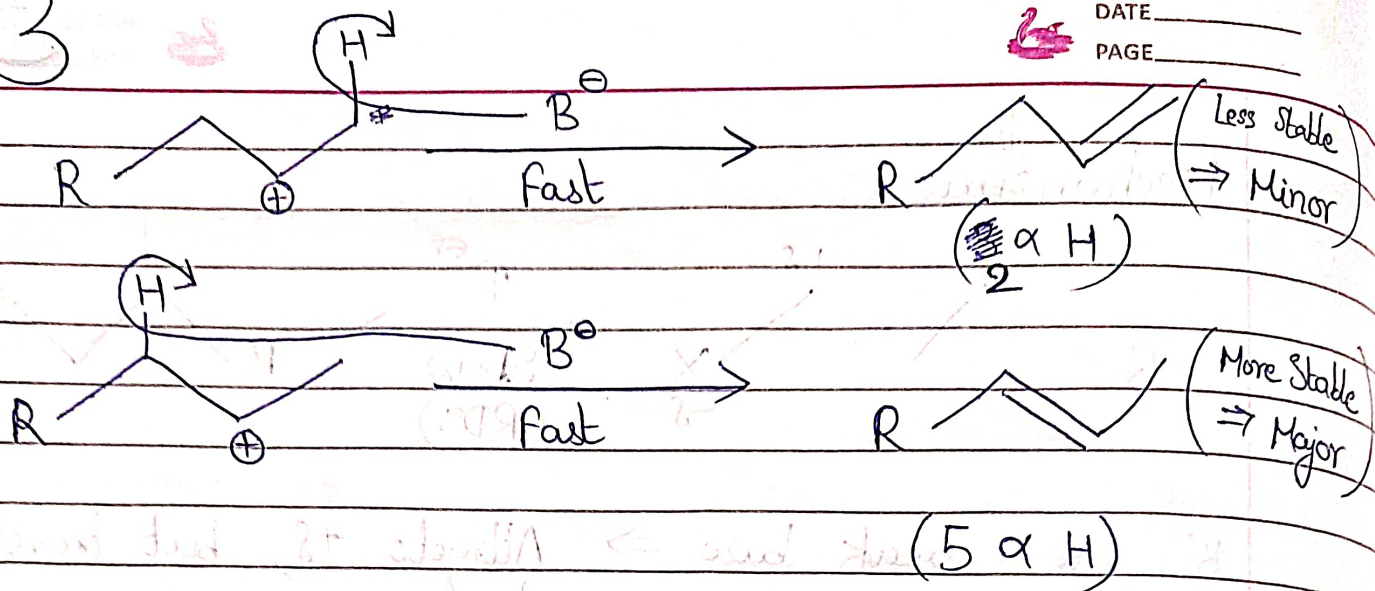 3
DATE
PAGE
H
B⊖
R ⊕
Fast
R
(Less Stable
⇒ Minor)
(2 α H)
H
B⊖
R ⊕
Fast
R
(More Stable
⇒ Major)
(5 α H)